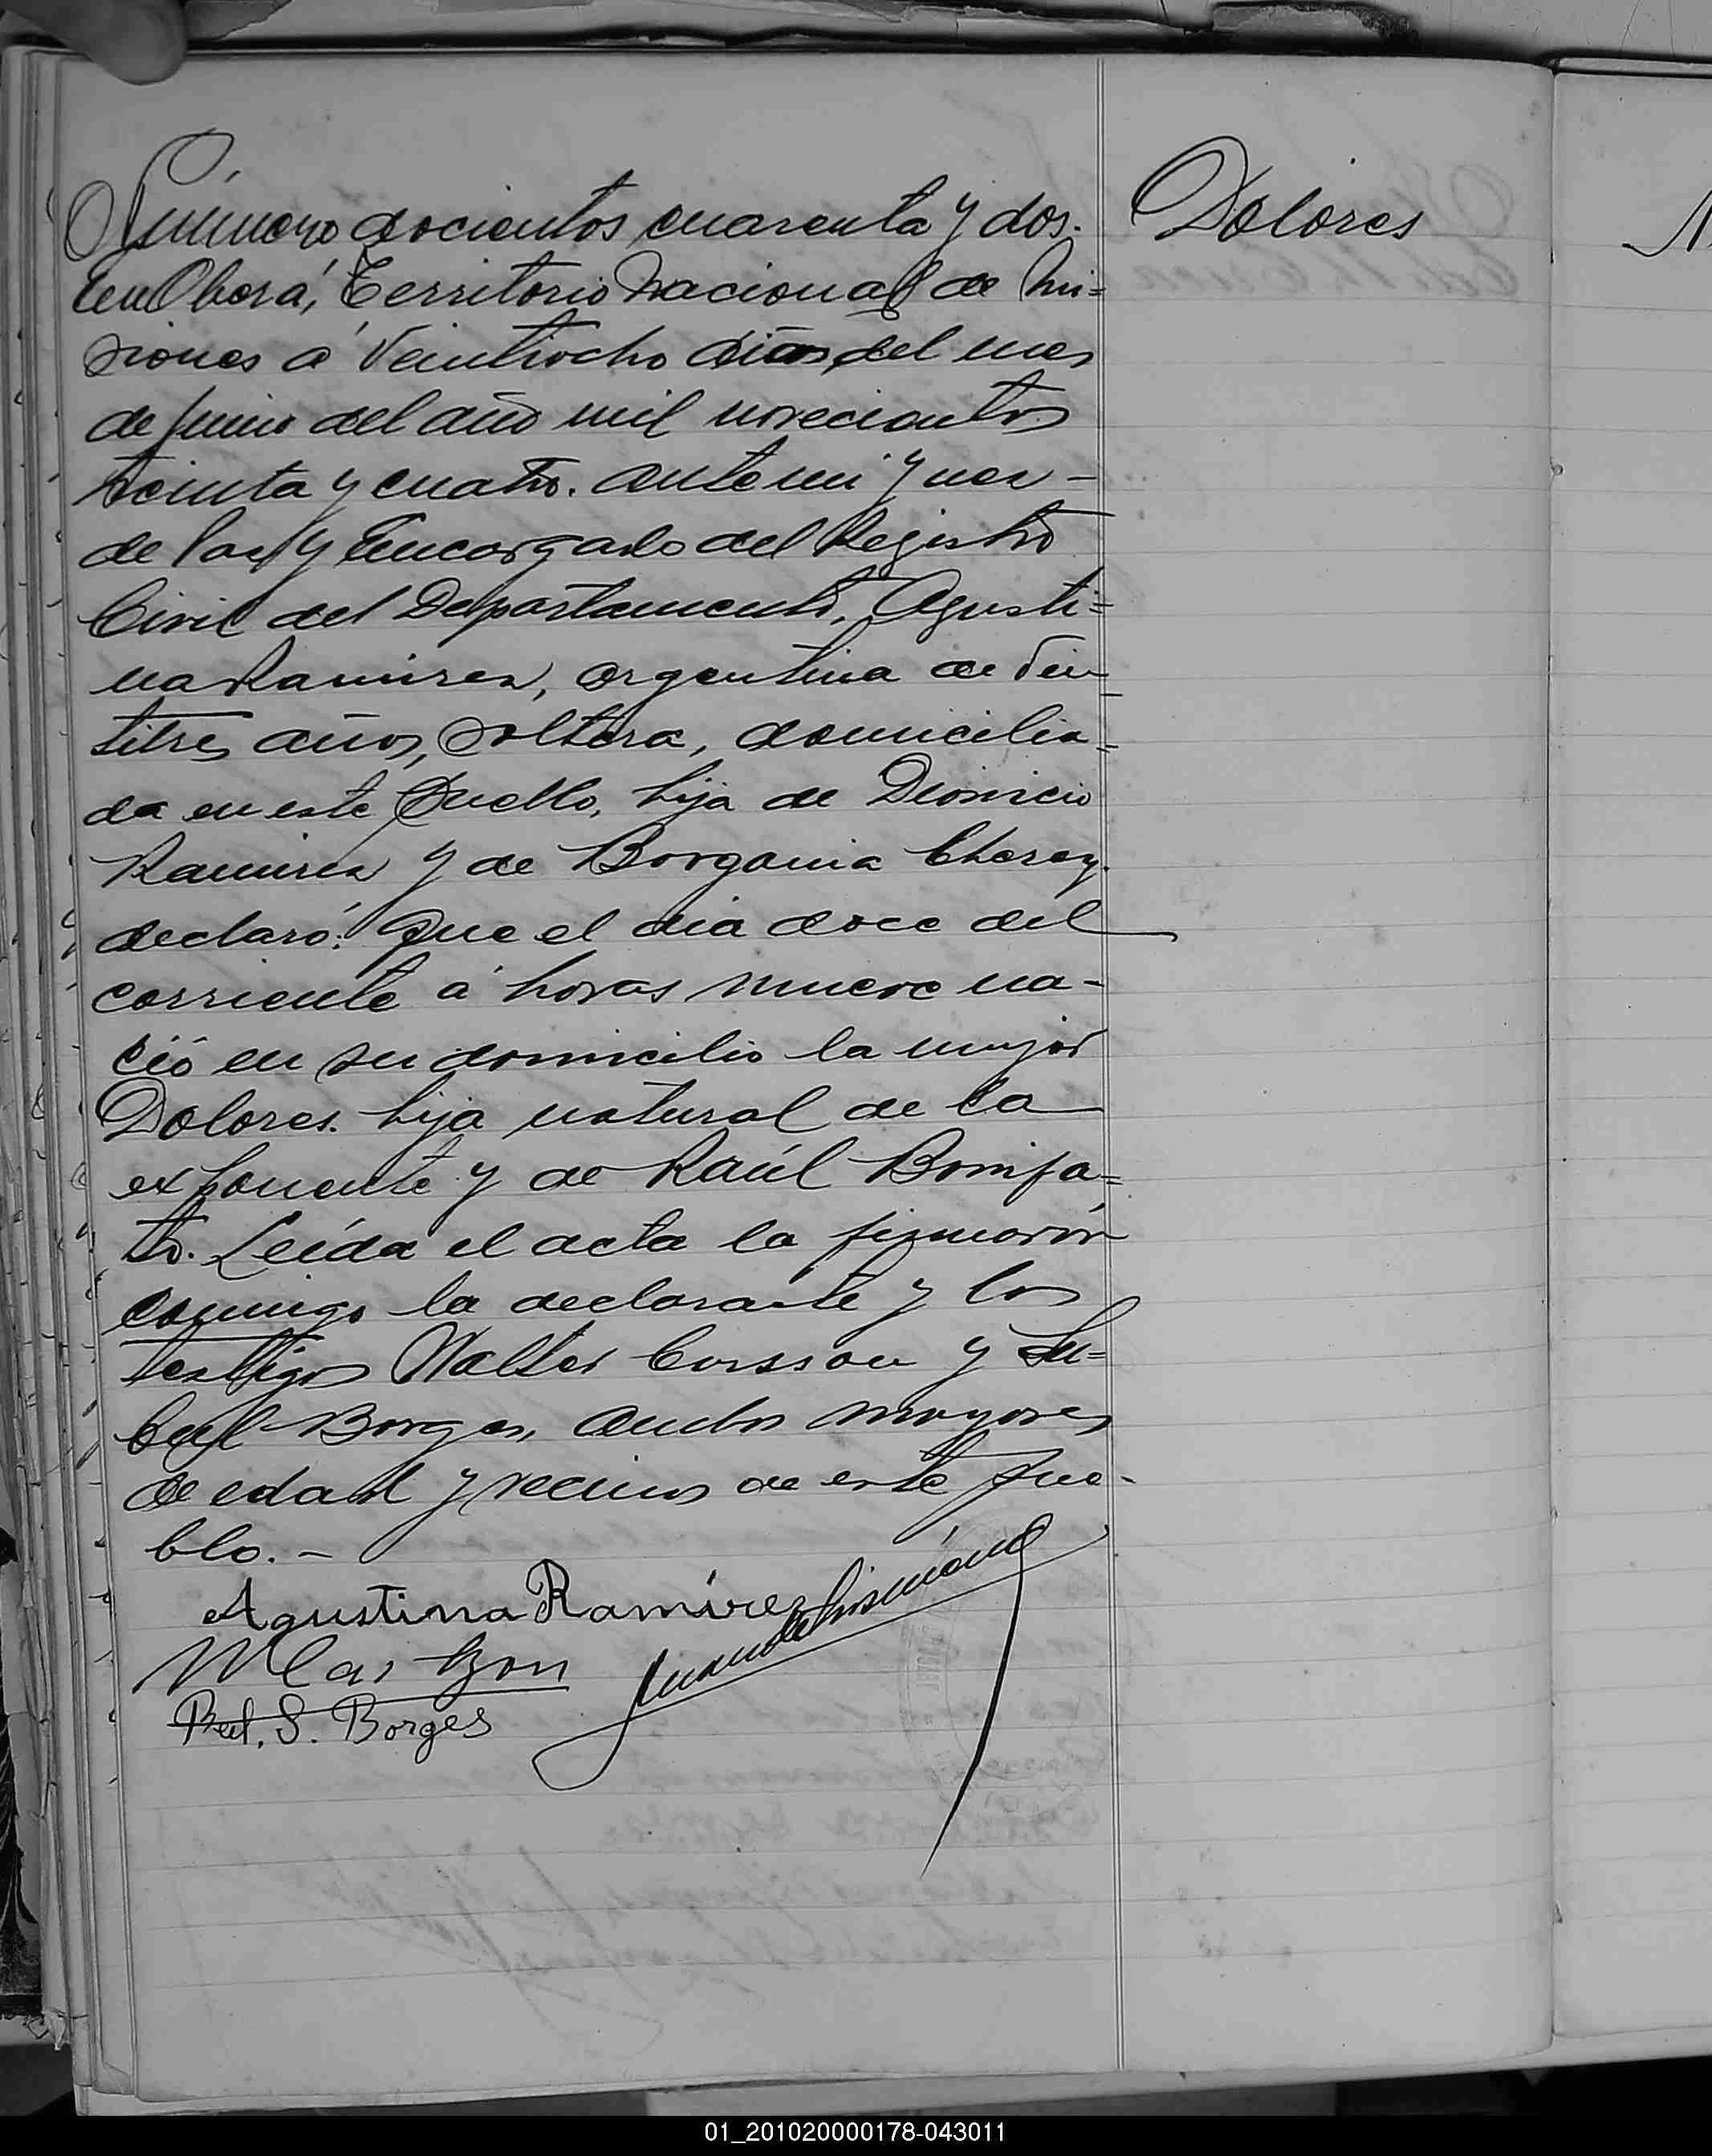 Número docientos cuarenta y dos.
Dolores
En Oberá, Territorio Nacional de Mi=
siones a veintiocho dias del mes
de Junio del año mil novecientos
treinta y cuatro. ante mi Juez -
de Paz y Encargado del Registro
Civil del Departamento, Agusti=
na Ramirez, argentina de vein
titres años, soltera, domicilia-
da en este Pueblo, hija de Dionicio
Ramirez y de
declaró: Que el dia doce del
corriente á horas nueve na-
ció en su domicilio la mujer
Dolores. hija natural de la
exponente y de Raúl Bonifa=
to. Leída el acta la firmarón
conmigo la declarante y los
testigos Walter y
Borges, ambos mayores
de edad y vecinos de este pue-
blo. -
Agustina Ramírez
S. Borges
01_201020000178-043011